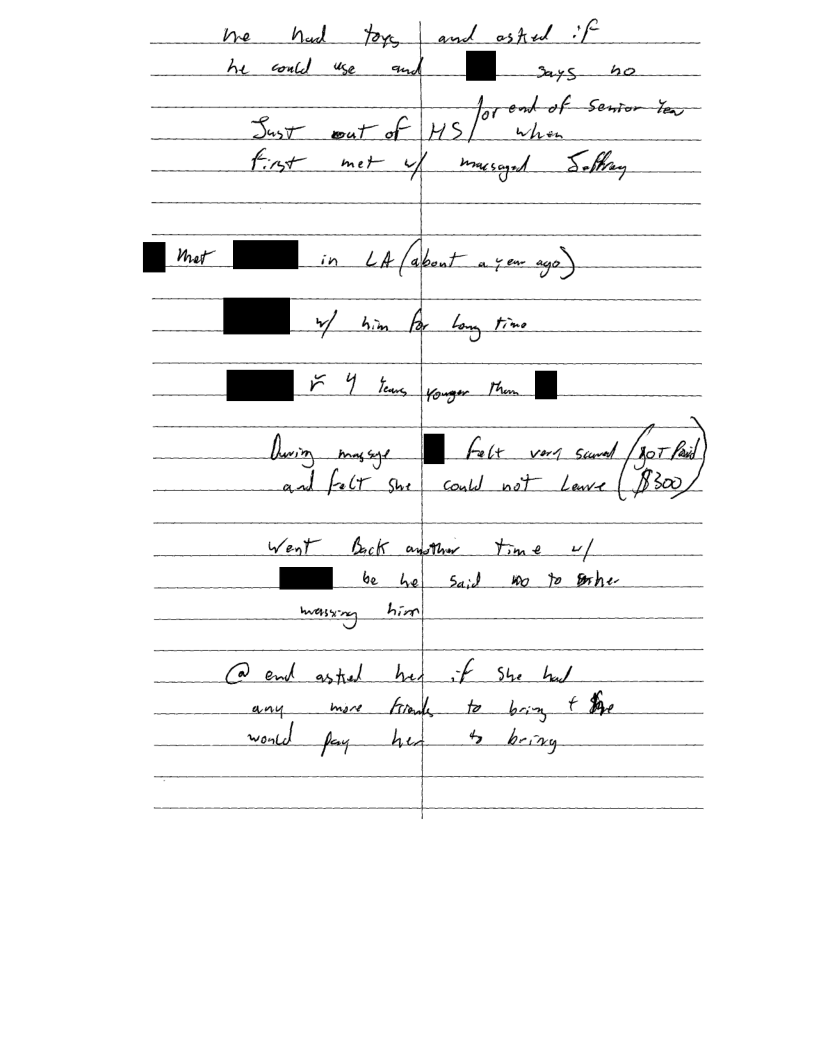 he had toys and asked if
he could use and says no
or end of senior Year
Just out of HS/ when
first met w/ massaged Jeffrey
met in LA (about a year ago)
w/ him for long time
4 Years younger than
During massage felt very scared (got Paid
and felt she could not leave $300)
Went Back another time w/
be he said no to her
massing him
@ end asked her if she had
any more friends to bring + he
would pay her to bring